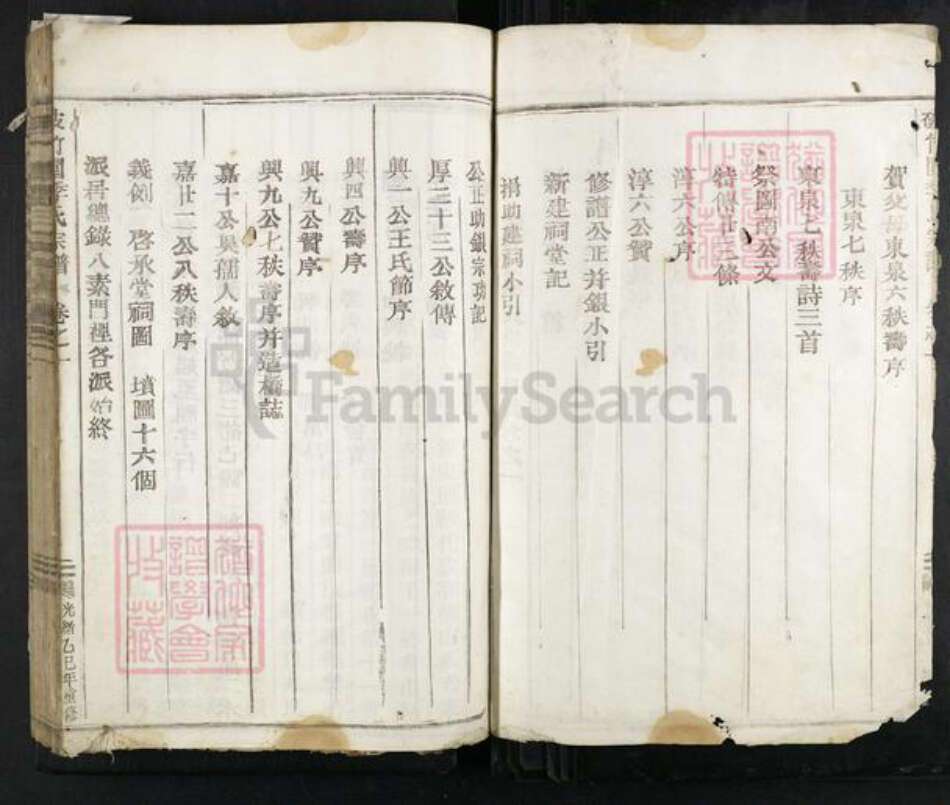 賀父母東泉六秩壽序
東泉七秩序
東泉七秩壽詩三首
祭圖南公文
特傳廿三條
淳六公序
淳六公贊
修譜公正并銀小引
新建祠堂記
捐助建祠小引
公正助銀宗功記
厚二十三公敘傳
興一公王氏節序
興四公壽序
興九公贊序
興九公七秩壽序并造橋誌
嘉十公吳孺人敘
嘉廿二公八秩壽序
義例 啓承堂祠圖 墳圖十六個
派引總錄八素門裡各派始終
李氏宗譜 卷之一
光緒乙巳年重修
譜學會
收藏
FamilySearch